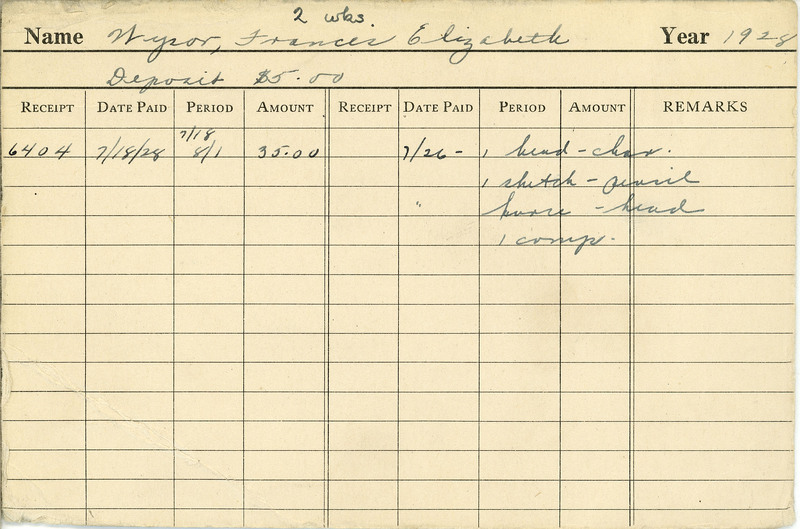 2 wks.
Name Wysor, Frances Elizabeth Year 1928
Deposit $5.00
RECEIPT DATE PAID PERIOD AMOUNT RECEIPT DATE PAID PERIOD AMOUNT REMARKS
7/18
6404 7/18/28 8/1 35.00 7/26 - 1 head - char.
1 sketch - pencil
" horse - head
1 comp.